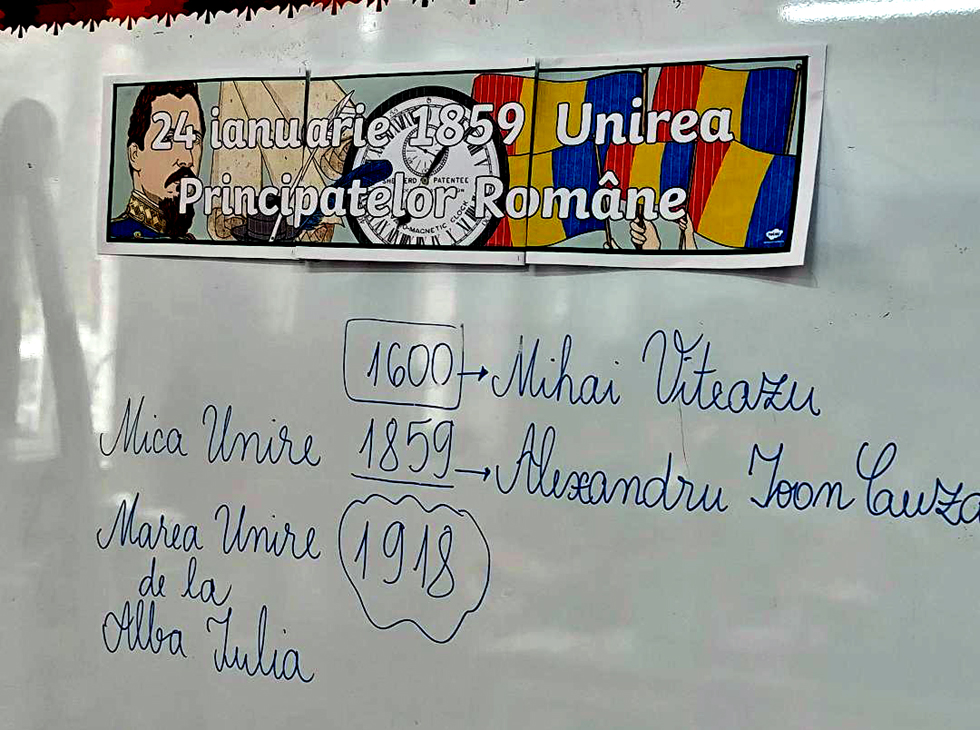 24 ianuarie 1859 Unirea
Principatelor Române
PATENTEE
MAGNETIC CLOCK
1600 → Mihai Viteazu
Mica Unire 1859 → Alexandru Ioan Cuza
Marea Unire 1918
de la
Alba Iulia